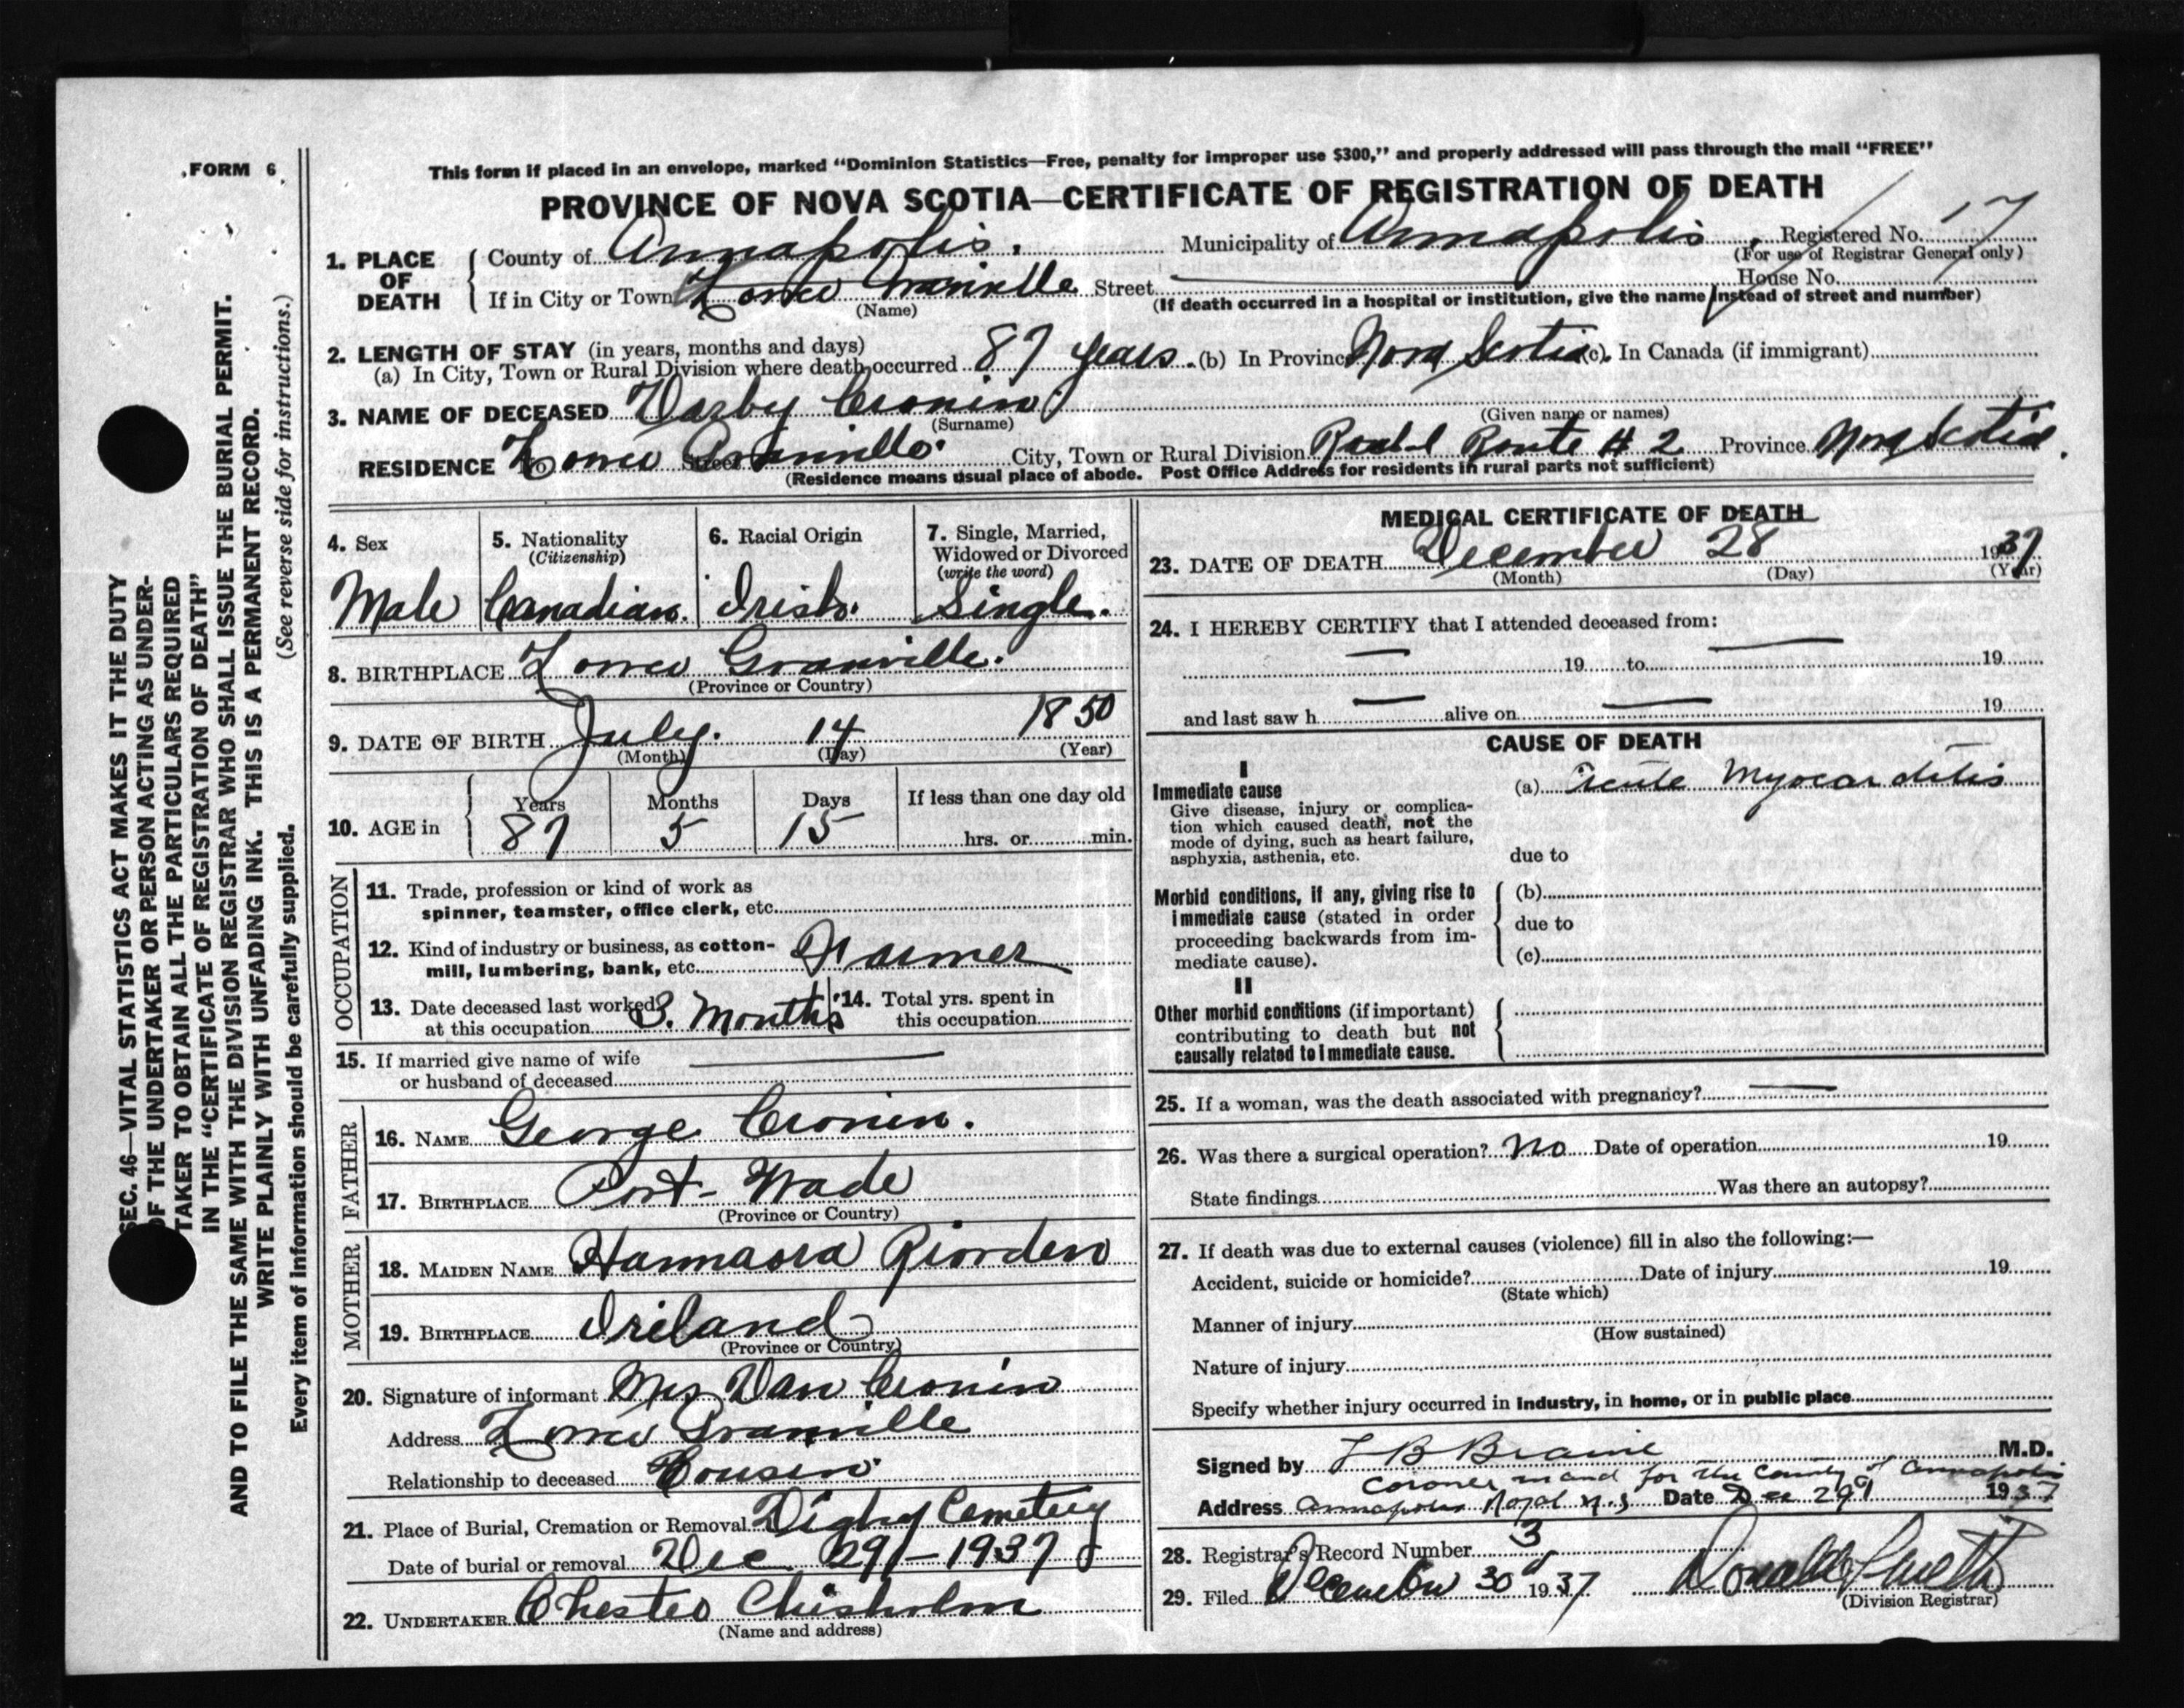 FORM 6
This form if placed in an envelope, marked "Dominion Statistics—Free, penalty for improper use $300," and properly addressed will pass through the mail "FREE"
PROVINCE OF NOVA SCOTIA—CERTIFICATE OF REGISTRATION OF DEATH
1. PLACE OF DEATH
County of Annapolis. Municipality of Annapolis Registered No. 17
(For use of Registrar General only)
If in City or Town Lower Granville Street House No.
(Name) (If death occurred in a hospital or institution, give the name instead of street and number)
2. LENGTH OF STAY (in years, months and days)
(a) In City, Town or Rural Division where death occurred 87 years. (b) In Province Nova Scotia (c). In Canada (if immigrant)
3. NAME OF DECEASED Darby Cronin
(Surname) (Given name or names)
RESIDENCE No Lower Street Granville. City, Town or Rural Division Route # 2 Province Nova Scotia.
(Residence means usual place of abode. Post Office Address for residents in rural parts not sufficient)
4. Sex
Male
5. Nationality
(Citizenship)
Canadian.
6. Racial Origin
Irish.
7. Single, Married,
Widowed or Divorced
(write the word)
Single.
8. BIRTHPLACE Lower Granville.
(Province or Country)
9. DATE OF BIRTH July. 14 1850
(Month) (Day) (Year)
10. AGE in
Years Months Days If less than one day old
87 5 15 hrs. or min.
OCCUPATION
11. Trade, profession or kind of work as
spinner, teamster, office clerk, etc.
12. Kind of industry or business, as cotton-
mill, lumbering, bank, etc. Farmer
13. Date deceased last worked
at this occupation 3. Months
14. Total yrs. spent in
this occupation
15. If married give name of wife
or husband of deceased
FATHER
16. NAME George Cronin.
17. BIRTHPLACE Port-Wade
(Province or Country)
MOTHER
18. MAIDEN NAME Hannaora Riorden
19. BIRTHPLACE Irland
(Province or Country)
20. Signature of informant Mrs Dan Cronin
Address Lower Granville
Relationship to deceased Cousin.
21. Place of Burial, Cremation or Removal Digby Cemetery
Date of burial or removal Dec 29/-1937
22. UNDERTAKER Chester Chisholm
(Name and address)
MEDICAL CERTIFICATE OF DEATH
23. DATE OF DEATH December 28 1937
(Month) (Day) (Year)
24. I HEREBY CERTIFY that I attended deceased from:
— 19 to — 19
and last saw h — alive on — 19
CAUSE OF DEATH
I
Immediate cause
Give disease, injury or complica-
tion which caused death, not the
mode of dying, such as heart failure,
asphyxia, asthenia, etc.
(a) Acute Myocarditis
due to
Morbid conditions, if any, giving rise to
immediate cause (stated in order
proceeding backwards from im-
mediate cause).
(b)
due to
(c)
II
Other morbid conditions (if important)
contributing to death but not
causally related to immediate cause.
25. If a woman, was the death associated with pregnancy? —
26. Was there a surgical operation? No Date of operation 19
State findings Was there an autopsy?
27. If death was due to external causes (violence) fill in also the following:—
Accident, suicide or homicide? Date of injury 19
(State which)
Manner of injury
(How sustained)
Nature of injury
Specify whether injury occurred in industry, in home, or in public place
Signed by L B Braine M.D.
Coroner in and for the County of Annapolis
Address Annapolis Royal N.S Date Dec 29 1937
28. Registrar's Record Number 3
29. Filed December 30 1937 Donald Smith
(Division Registrar)
SEC. 46—VITAL STATISTICS ACT MAKES IT THE DUTY
OF THE UNDERTAKER OR PERSON ACTING AS UNDER-
TAKER TO OBTAIN ALL THE PARTICULARS REQUIRED
IN THE "CERTIFICATE OF REGISTRATION OF DEATH"
AND TO FILE THE SAME WITH THE DIVISION REGISTRAR WHO SHALL ISSUE THE BURIAL PERMIT.
WRITE PLAINLY WITH UNFADING INK. THIS IS A PERMANENT RECORD.
Every item of information should be carefully supplied. (See reverse side for instructions.)